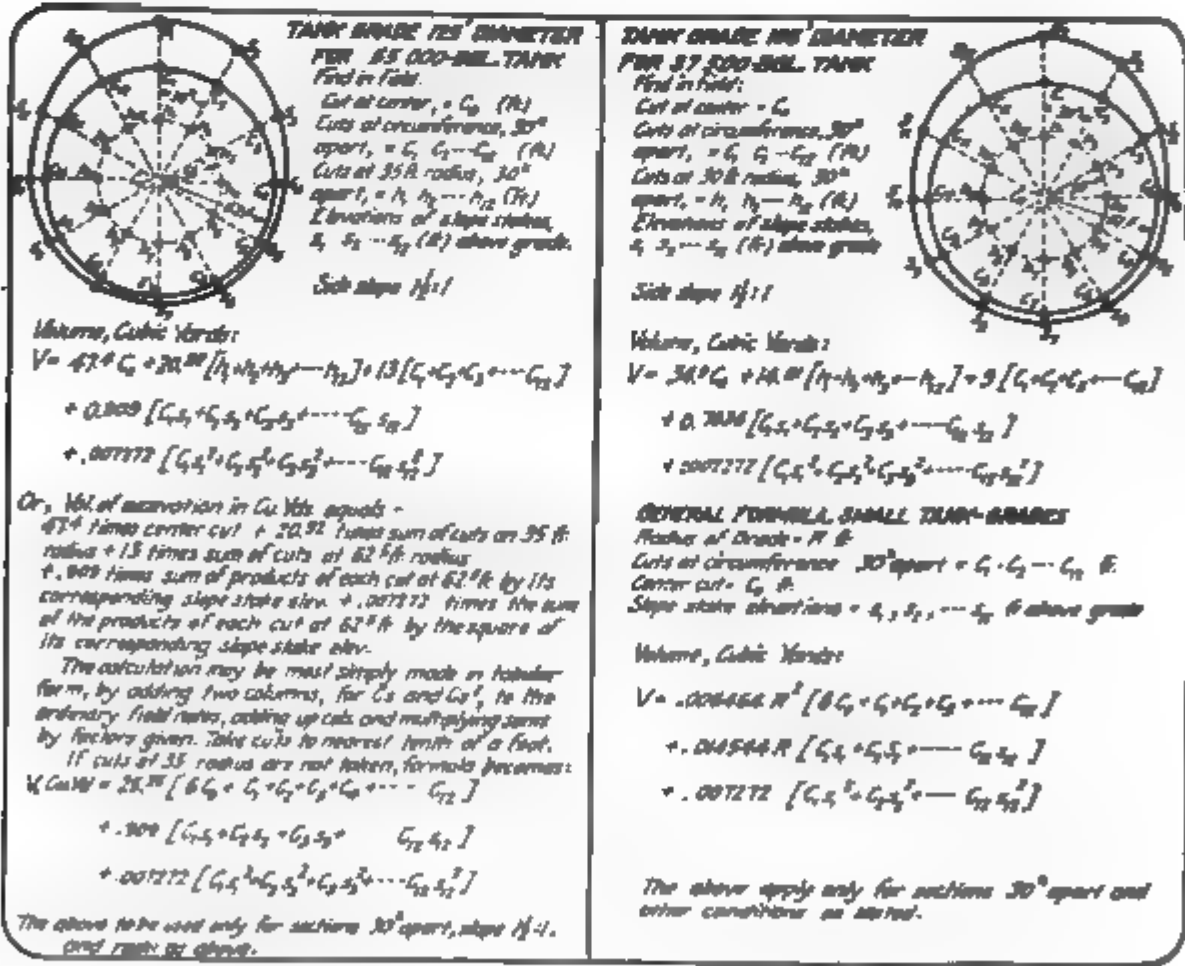 TANK GRADE 125' DIAMETER
FOR 55 000-BBL. TANK
Find in field:
Cut at center, = C₀ (ft)
Cuts at circumference, 30°
apart, = C₁ C₂ --- C₁₂ (ft)
Cuts at 35 ft. radius, 30°
apart, = h₁ h₂ --- h₁₂ (ft)
Elevations of slope stakes,
s₁ s₂ --- s₁₂ (ft) above grade.
Side slope 1½:1
Volume, Cubic Yards:
V = 47.4 C₀ + 20.92 [h₁+h₂+h₃+---h₁₂] + 13 [C₁+C₂+C₃+--- C₁₂]
+ 0.909 [C₁s₁+C₂s₂+C₃s₃+----- C₁₂ s₁₂]
+ .007272 [C₁s₁²+C₂s₂²+C₃s₃²+---- C₁₂ s₁₂²]
Or, Vol. of excavation in Cu. Yds equals -
47.4 times center cut + 20.92 times sum of cuts on 35 ft.
radius + 13 times sum of cuts at 62.5 ft. radius
+ .909 times sum of products of each cut at 62.5 ft. by its
corresponding slope stake elev. + .007272 times the sum
of the products of each cut at 62.5 ft by the square of
its corresponding slope stake elev.
The calculation may be most simply made in tabular
form, by adding two columns, for Cs and Cs², to the
ordinary field notes, adding up cols. and multiplying sums
by factors given. Take cuts to nearest tenth of a foot.
If cuts at 35 radius are not taken, formula becomes:
V, Cu Yd = 25.25 [6C₀ + C₁+C₂+C₃+C₄+--- C₁₂]
+ .909 [C₁s₁+C₂s₂+C₃s₃+ C₁₂ s₁₂]
+ .007272 [C₁s₁²+C₂s₂²+C₃s₃²+---C₁₂ s₁₂²]
The above to be used only for sections 30° apart, slope 1½:1,
and radii as above.
TANK GRADE DIAMETER
FOR 37 500-BBL. TANK
Find in field:
Cut at center = C₀
Cuts at circumference, 30°
apart, = C₁ C₂ --- C₁₂ (ft)
Cuts at 30 ft radius, 30°
apart, = h₁ h₂ --- h₁₂ (ft.)
Elevations of slope stakes,
s₁ s₂ --- s₁₂ (ft) above grade
Side slope 1½:1
Volume, Cubic Yards:
V = C₀ + [h₁+h₂+h₃+--- h₁₂] + 9 [C₁+C₂+C₃+--- C₁₂]
+ [C₁s₁+C₂s₂+C₃s₃+---- C₁₂ s₁₂]
+ .007272 [C₁s₁²+C₂s₂²+C₃s₃²+---- C₁₂ s₁₂²]
GENERAL FORMULA, SMALL TANK-GRADES
Radius of Grade = R ft
Cuts at circumference 30° apart = C₁ - C₂ --- C₁₂ ft.
Center cut = C₀ ft.
Slope stake elevations = s₁, s₂, --- s₁₂ ft above grade
Volume, Cubic Yards:
V = .006464 R² [6C₀ + C₁+C₂+C₃+--- C₁₂]
+ .014544 R [C₁s₁+C₂s₂+---- C₁₂ s₁₂]
+ .007272 [C₁s₁²+C₂s₂²+--- C₁₂ s₁₂²]
The above apply only for sections 30° apart and
other conditions as stated.